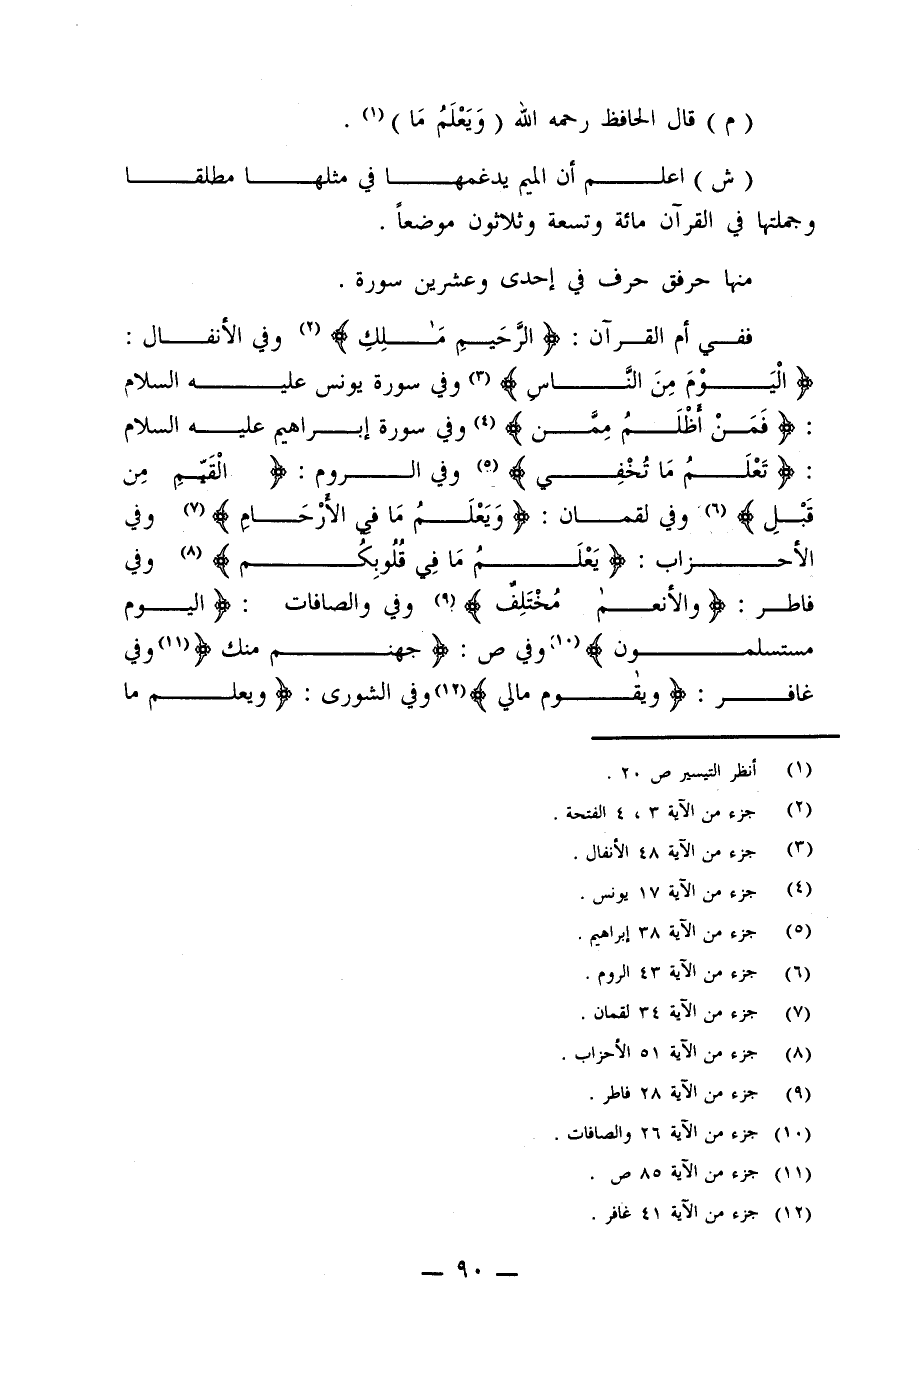 ( م ) قال الحافظ رحمه الله ( وَيَعْلَمُ مَا )(١) .
( ش ) اعلم أن الميم يدغمها في مثلها مطلقا
وجملتها في القرآن مائة وتسعة وثلاثون موضعاً .
منها حرفق حرف في إحدى وعشرين سورة .
ففي أم القرآن : ﴿ الرَّحَيمِ مَٰلِكِ ﴾ (٢) وفي الأنفال :
﴿ الْيَوْمَ مِنَ النَّاسِ ﴾ (٣) وفي سورة يونس عليه السلام
: ﴿ فَمَنْ أَظْلَمُ مِمَّن ﴾ (٤) وفي سورة إبراهيم عليه السلام
: ﴿ تَعْلَمُ مَا تُخْفِي ﴾ (٥) وفي الروم : ﴿ الْقَيِّمِ مِن
قَبْلِ ﴾ (٦) وفي لقمان : ﴿ وَيَعْلَمُ مَا فِي الأَرْحَامِ ﴾ (٧) وفي
الأحزاب : ﴿ يَعْلَمُ مَا فِي قُلُوبِكُم ﴾ (٨) وفي
فاطر : ﴿ والأنعٰم مُخْتَلِفٌ ﴾ (٩) وفي والصافات : ﴿ اليوم
مستسلمون ﴾ (١٠) وفي ص : ﴿ جهنم منك ﴾ (١١) وفي
غافر : ﴿ ويقٰوم مالي ﴾ (١٢) وفي الشورى : ﴿ ويعلم ما
(١) أنظر التيسير ص ٢٠ .
(٢) جزء من الآية ٣ ، ٤ الفتحة .
(٣) جزء من الآية ٤٨ الأنفال .
(٤) جزء من الآية ١٧ يونس .
(٥) جزء من الآية ٣٨ إبراهيم .
(٦) جزء من الآية ٤٣ الروم .
(٧) جزء من الآية ٣٤ لقمان .
(٨) جزء من الآية ٥١ الأحزاب .
(٩) جزء من الآية ٢٨ فاطر .
(١٠) جزء من الآية ٢٦ والصافات .
(١١) جزء من الآية ٨٥ ص .
(١٢) جزء من الآية ٤١ غافر .
— ٩٠ —